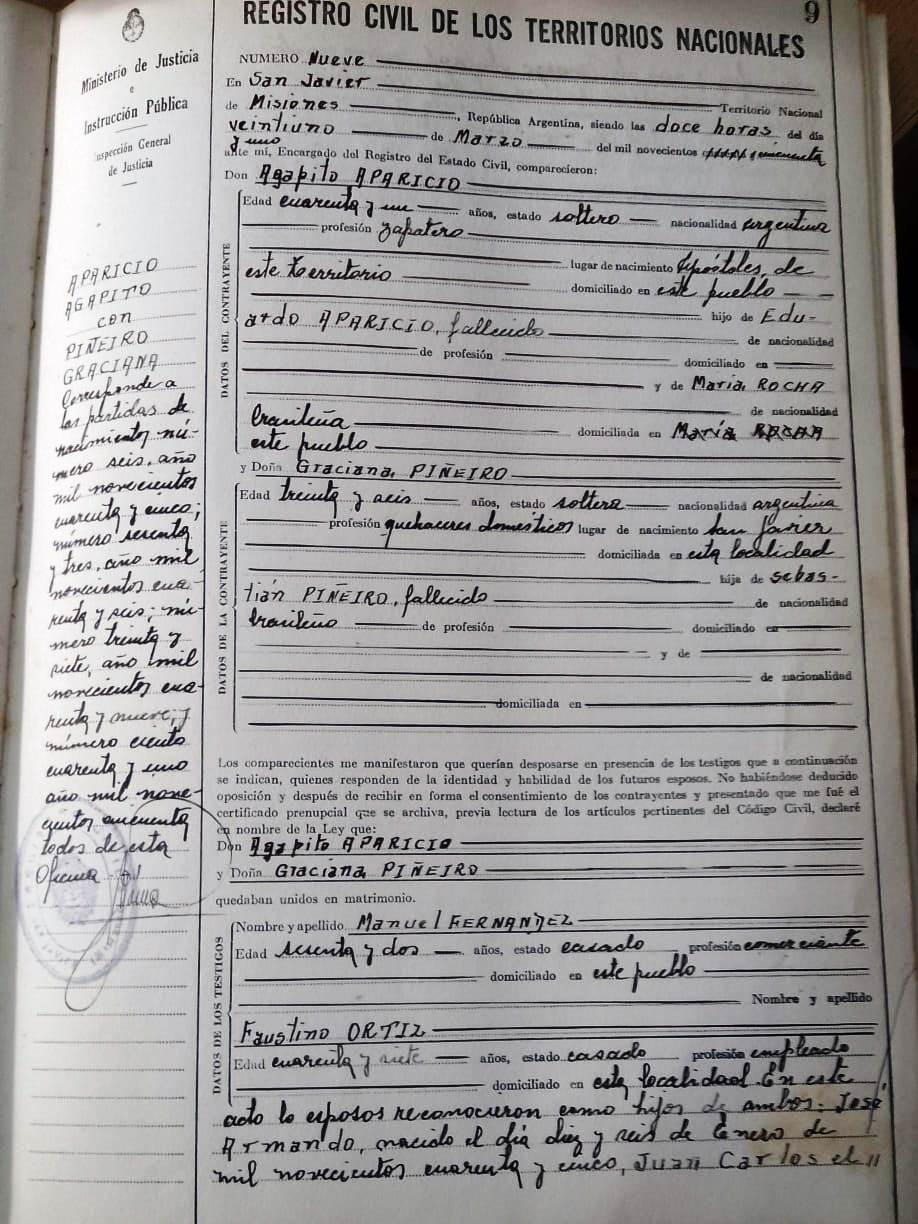 9
REGISTRO CIVIL DE LOS TERRITORIOS NACIONALES
Ministerio de Justicia
e
Instrucción Pública
Inspección General
de Justicia
APARICIO
AGAPITO
con
PIÑEIRO
GRACIANA
Corresponde a
las partidas de
nacimientos nú-
mero seis, año
mil novecientos
cuarenta y cinco;
número sesenta
y tres, año mil
novecientos cua-
renta y seis; nú-
mero treinta y
siete, año mil
novecientos cua-
renta y nueve, y
número ciento
cuarenta y uno
año mil nove-
cientos cincuenta
todos de esta
Oficina
NUMERO Nueve
En San Javier
Territorio Nacional
de Misiones, República Argentina, siendo las doce horas del día
veintiuno de Marzo del mil novecientos cincuenta
y uno
ante mí, Encargado del Registro del Estado Civil, comparecieron:
Don Agapito APARICIO
DATOS DEL CONTRAYENTE
Edad cuarenta y un años, estado soltero nacionalidad argentina
profesión zapatero
lugar de nacimiento Apóstoles, de
este territorio domiciliado en este pueblo
hijo de Edu-
ardo APARICIO, fallecido de nacionalidad
de profesión domiciliado en
y de María ROCHA
de nacionalidad
brasileña domiciliada en María ROCHA
este pueblo
y Doña Graciana PIÑEIRO
DATOS DE LA CONTRAYENTE
Edad treinta y seis años, estado soltera nacionalidad argentina
profesión quehaceres domésticos lugar de nacimiento San Javier
domiciliada en esta localidad
hija de Sebas-
tián PIÑEIRO, fallecido de nacionalidad
brasileno de profesión domiciliado en
y de
de nacionalidad
domiciliada en
Los comparecientes me manifestaron que querían desposarse en presencia de los testigos que a continuación
se indican, quienes responden de la identidad y habilidad de los futuros esposos. No habiéndose deducido
oposición y después de recibir en forma el consentimiento de los contrayentes y presentado que me fué el
certificado prenupcial que se archiva, previa lectura de los artículos pertinentes del Código Civil, declaré
en nombre de la Ley que:
Don Agapito APARICIO
y Doña Graciana PIÑEIRO
quedaban unidos en matrimonio.
DATOS DE LOS TESTIGOS
Nombre y apellido Manuel FERNANDEZ
Edad sesenta y dos años, estado casado profesión comerciante
domiciliado en este pueblo
Nombre y apellido
Faustino ORTIZ
Edad cuarenta y siete años, estado casado profesión empleado
domiciliado en esta localidad. En este
acto lo esposos reconocieron como hijos de ambos: José
Armando, nacido el día diez y seis de Enero de
mil novecientos cuarenta y cinco, Juan Carlos el